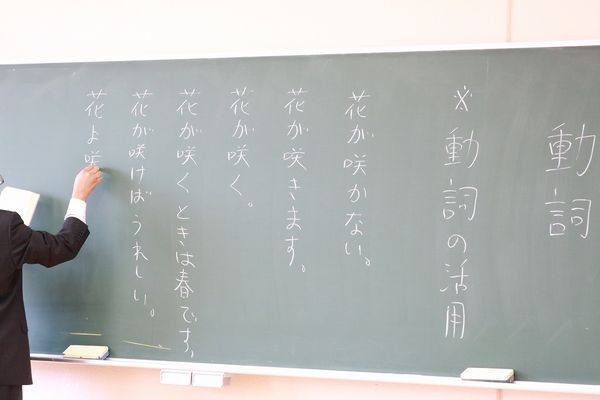 動詞
※動詞の活用
花が咲かない。
花が咲きます。
花が咲く。
花が咲くときは春です。
花が咲けばうれしい。
花よ咲